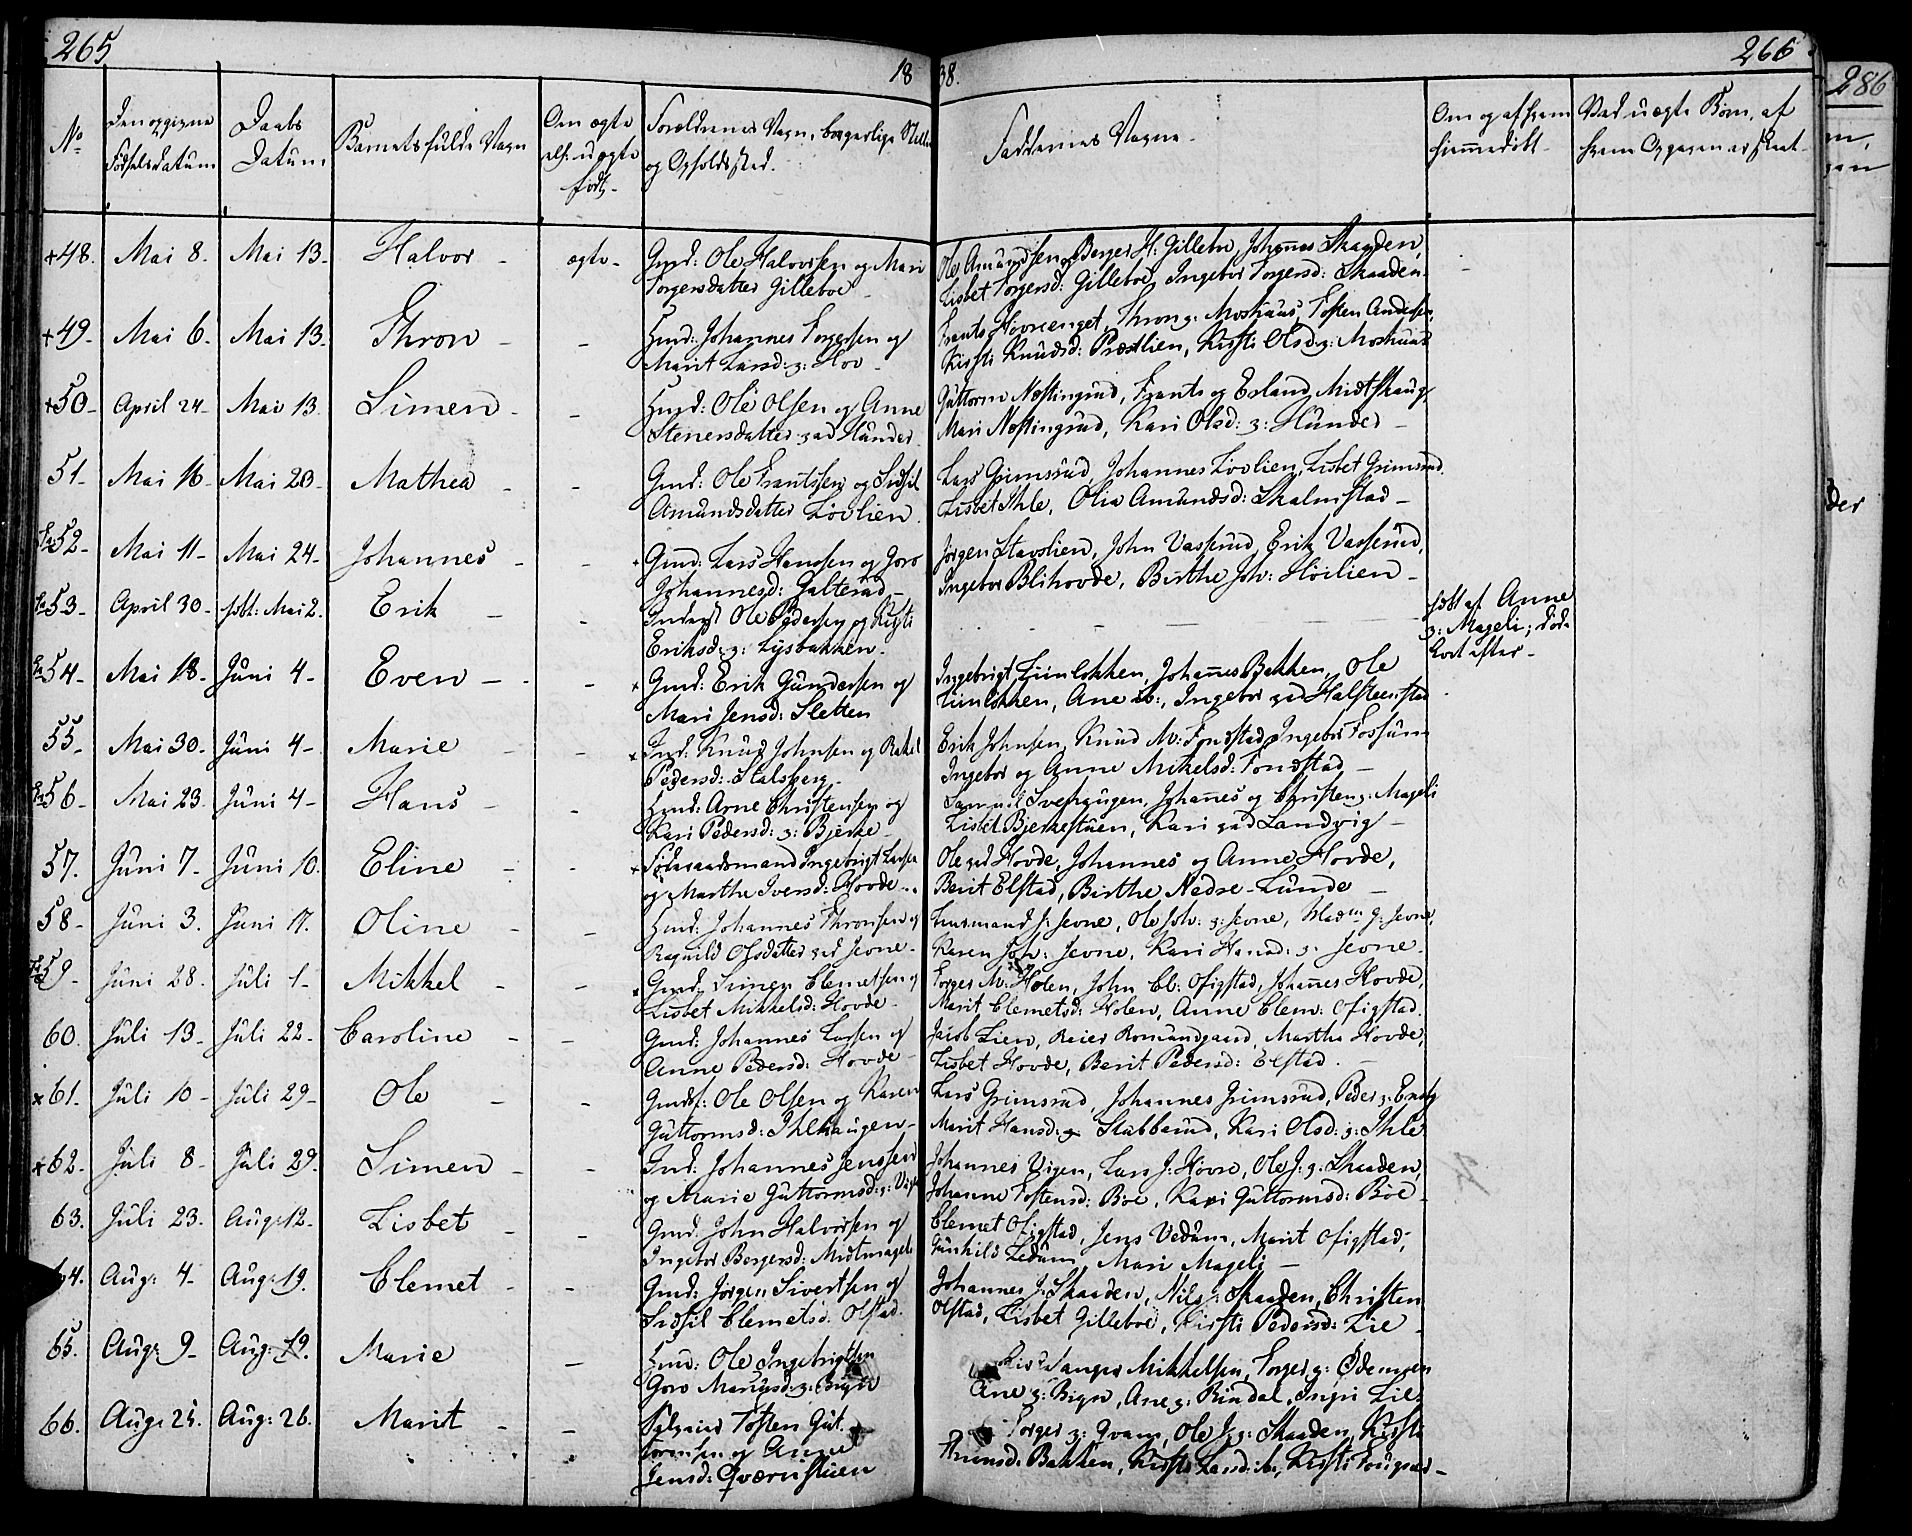 265
18 38.
266
286
No
Den opgivne Fødselsdatum
Daabs Datum
Barnets fulde Navn
Om ægte eller uægte født
Forældrenes Navn, borgerlige Still: og Opholdssted.
Faddernes Navne
Om og af hvem hiemmedøbt
Ved uægte Børn, af hvem Opgaven er skeet
+48. Mai 8. Mai 13. Halvor - ægte - Gmd: Ole Halvorsen og Mari Ole Amundsen, Berger H: Gilleboe, Johannes Skaaden,
Torgersdatter Gilleboe - Lisbet Torgersd: Gilleboe, Ingebor Torgersd: Skaaden.
+49. Mai 6. Mai 13. Thron - - Hmd: Johannes Torgersen og Frants Hovreenget, Thron g: Moshuus, Tosten Andersen,
Marit Larsd: g: Hov - Kirsti Knudsd: Præstlien, Kirsti Olsd: g: Moshuus
+50- April 24- Mai 13. Simen - - Hmd: Ole Olsen og Anne Guttorm Nostingrud, Frants og Erland Midtskaug,
Stenersdatter ved Hunder - Mari Nostingrud, Kari Olsd: g: Hunder -
51- Mai 16- Mai 23- Mathea - - Gmd: Ole Frantssen og Sidsil Lars Grimsrud, Johannes Lovlien, Lisbet Grimsrud,
Amundsdatter Lovlien. Lisbet Ihle, Olia Amundsd: Skalmstad -
52- Mai 11- Mai 24- Johannes - - Gmd: Lars Hansen og Goro Jørgen Stavslien, John Vasrud, Erik Vasrud,
Johannesd: Galterud - Ingebor Blihovde, Birthe Joh: Hoilien -
53- April 30- hbt: Mai 2. Erik - - Inderst Ole Pedersen og Kirsti
Eriksd: g: Lysbakken - hbt af Anne g: Mageli; død kort efter -
54- Mai 18- Juni 4- Even - - Gmd: Erik Gundersen og Ingebrigt Liinlokken, Johannes Bakken, Ole
Mari Jensd: Sletten Liinlokken, Ane ib:, Ingebor ved Halsteenstad
55- Mai 30- Juni 4- Marie - - Ind: Knud Johnsen og Rakel Erik Johnsen, Knud M: Fonstad, Ingebor Fossum
Pedersd: Stalsberg - Ingebor og Anne Mikelsd: Fonstad -
56- Mai 23. Juni 4- Hans - - Hmd: Arne Christensen og Samuel Svehaugen, Johannes og Christen g: Mageli
Kari Pedersd: g: Bjerke - Lisbet Bjerkestuen, Kari ved Landvig -
57. Juni 7- Juni 10. Eline - - Selveiermand Ingebrigt Larsen Ole ved Hovde, Johannes og Anne Hovde,
og Marthe Iversd: Hovde - Berit Elstad, Birthe Nedre-Lunde -
58- Juni 3. Juni 17. Oline - - Hmd: Johannes Thronsen og Lensmand J: Jevne, Ole Joh: g: Jevne, Madm g: Jevne,
Ragnild Olsdatter ved Jevne - Karen Joh: Jevne, Kari Hansd: g: Jevne -
59- Juni 28. Juli 1- Mikkel - - Gmd: Simen Clemetsen og Torger M: Holen, John Cl: Ofigstad, Johannes Hovde,
Lisbet Mikkelsd: Hovde - Marit Clemetsd: Holen, Anne Clem: Ofigstad.
60. Juli 13- Juli 22- Caroline - - Gmd: Johannes Larsen og Jacob Lien, Reier Romundgaard, Martha Hovde,
Anne Pedersd: Hovde - Lisbet Hovde, Berit Pedersd: Elstad. -
×61- Juli 10- Juli 29- Ole - - Gmd: Ole Olsen og Karen Lars Grimsrud, Johannes Grimsrud, Peder g: Enge
Guttormsd: Ihlehaugen - Marit Hansd: g: Stubberud, Kari Olsd: g: Ihle
×62- Juli 8- Juli 29. Simen - - Ind: Johannes Jenssen Johannes Vigen, Lars J: Hovre, Ole J: g: Skaaden,
og Marie Guttormsd: g: Vigen Johanne Tostensd: Böe, Kari Guttormsd: Böe -
63. Juli 23. Aug: 12- Lisbet - - Gmd: John Halvorsen og Clemet Ofigstad, Jens Vedum, Marit Ofigstad,
Ingebor Bergersd: Midtmageli Gunhild Vedum, Mari Mageli -
64. Aug: 4- Aug: 19. Clemet - - Gmd: Jørgen Sivertsen og Johannes J: Skaaden, Nils g: Skaaden, Christen
Sidsil Clemetsd: Olstad. Olstad, Lisbet Gilleboe, Kirsti Pedersd: Lie -
65. Aug: 9- Aug: 19. Marie - Hmd: Ole Ingebrigtsen Mikkelsen, Torger g:
Goro Mariusd: g: Bryn Ane g: Bryn, Ane g: Rindal, Ingri Lie-
66. Aug: 25. Aug: 26. Marit - - Selveier Tosten Gut- Torger g: Qvam, Ole J: g: Skaaden, Kirsti
tormsen og Anne Bakken, Kirsti Larsd: ib:, Kirsti
Jensd: Qværnstuen